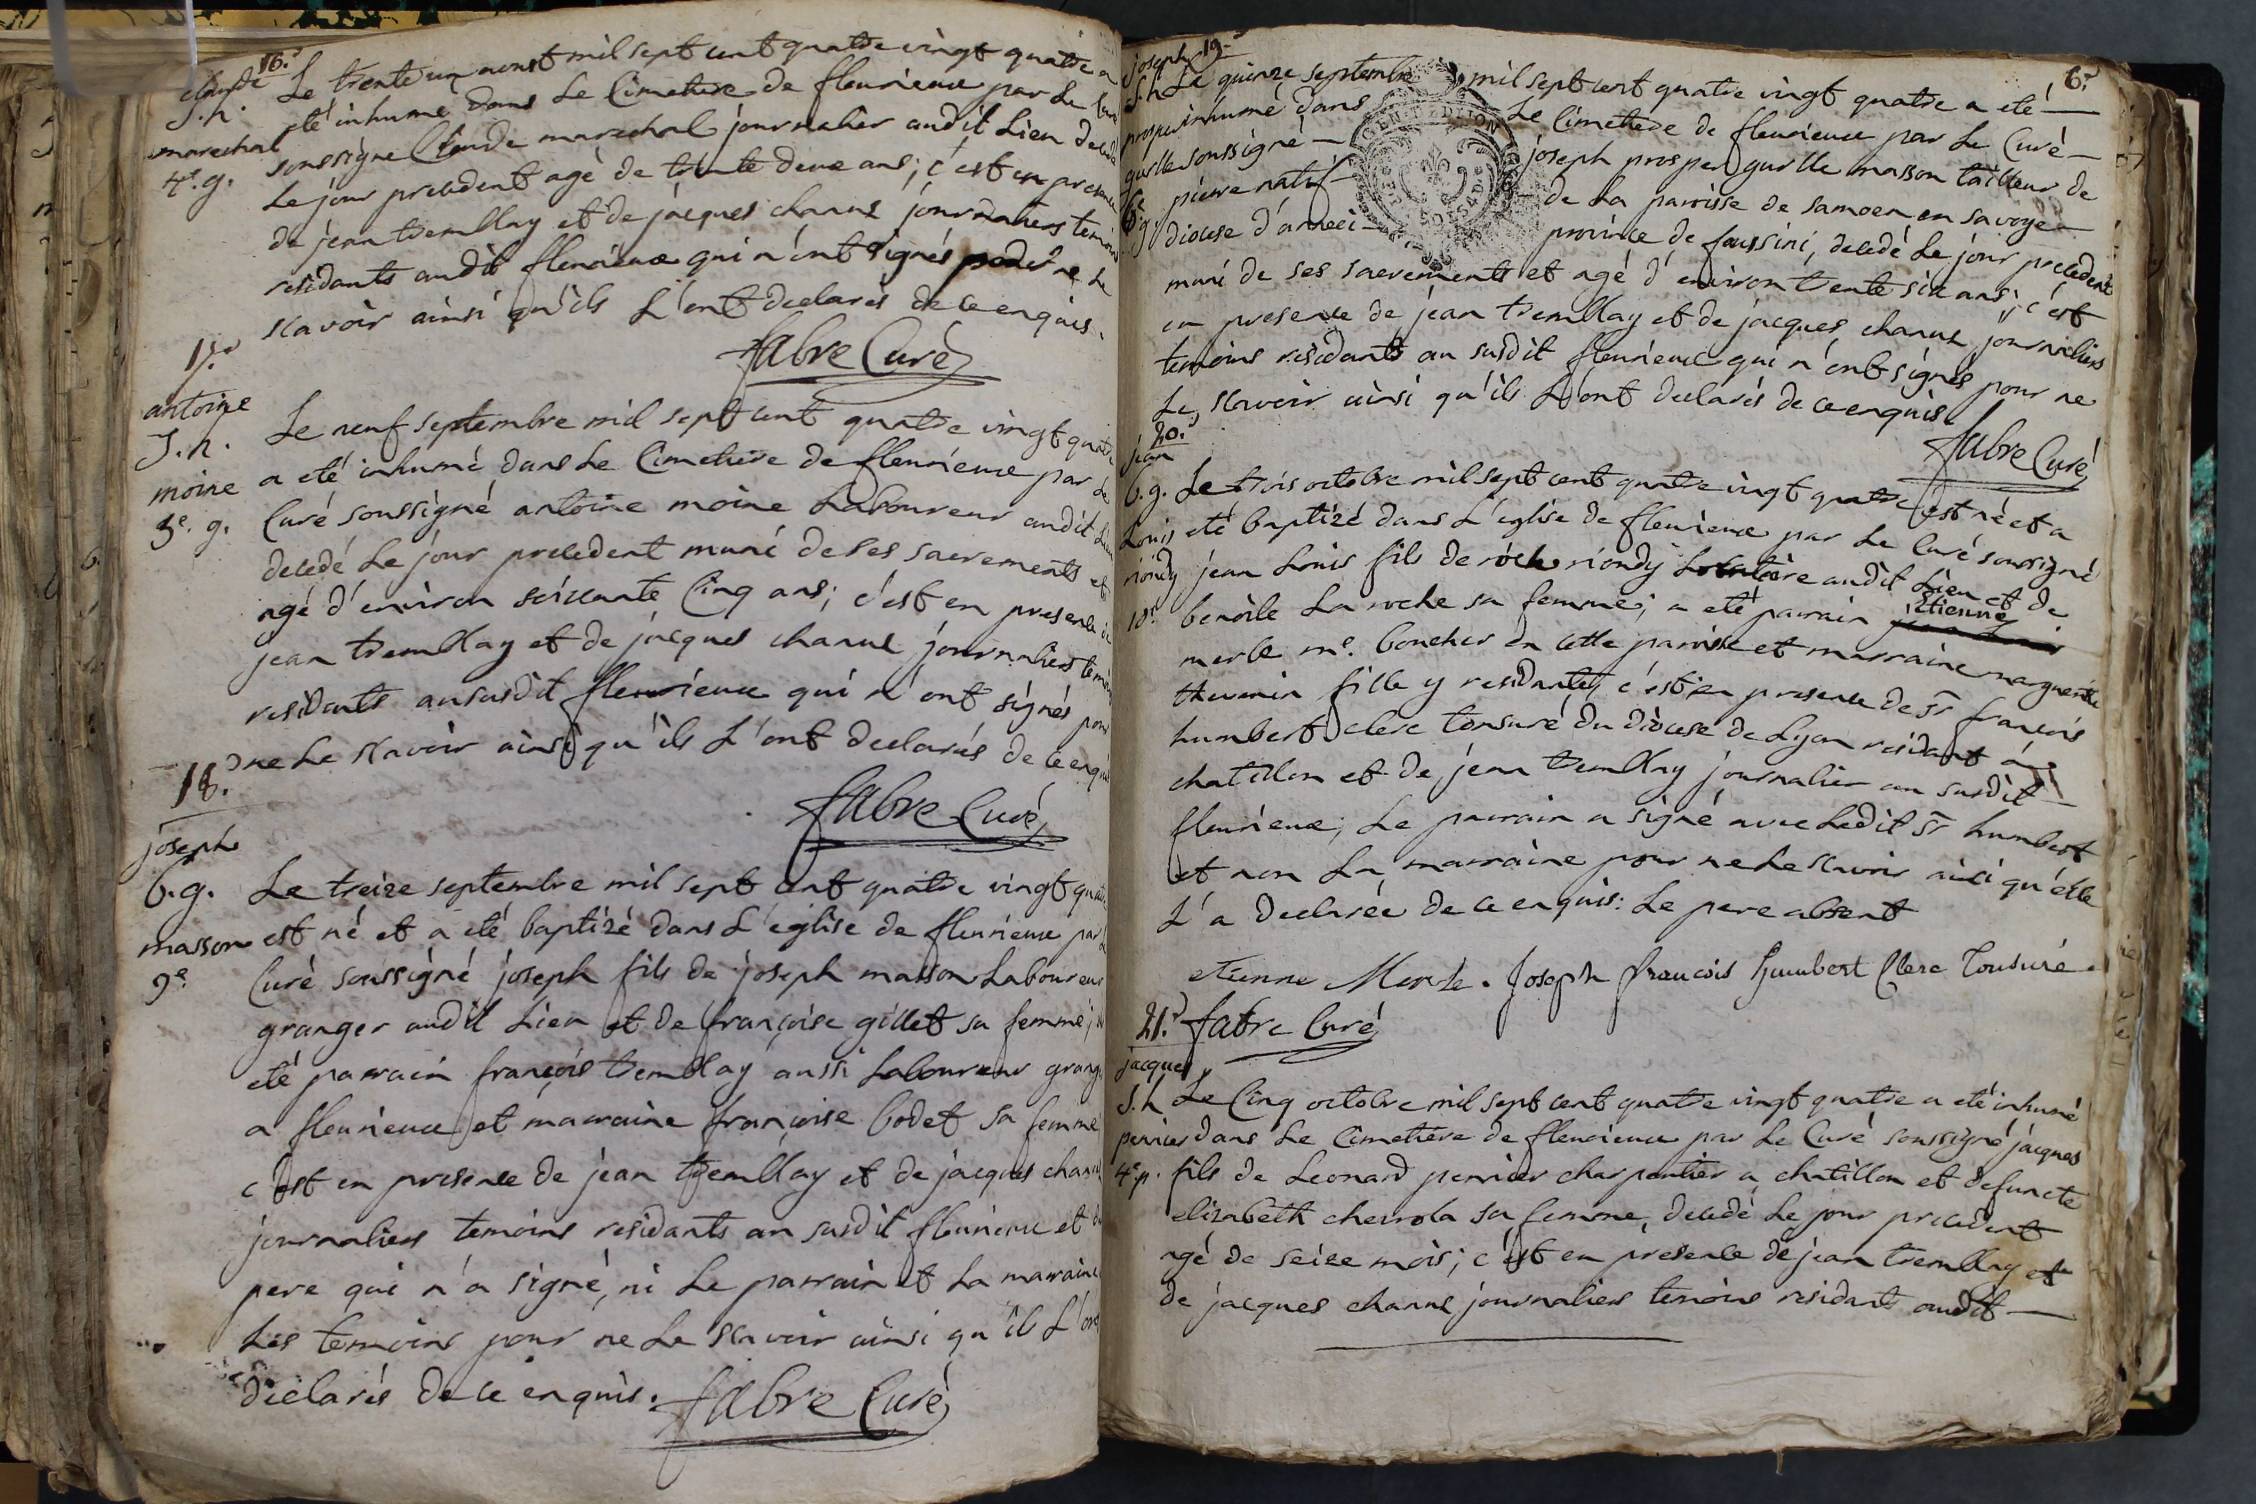 16.e
claude
S.h.
marechal
4e. g.
Le trente un aoust mil sept cent quatre vingt quatre a
eté inhumé dans Le Cimetiere de fleurieux par Le Curé
soussigné Claude marechal journalier audit Lieu decedé
Le jour precedent agé de trente deux ans; c'est en presence
de jean tremblay et de jacques charme journaliers temoins
residants audit fleurieux qui n'ont signés pour ne Le
scavoir ainsi qu'ils L'ont declarés de ce enquis.
fabre Curé
17.e
antoine
S.h.
moine
5e. g.
Le neuf septembre mil sept cent quatre vingt quatre
a eté inhumé dans Le Cimetiere de fleurieux par Le
Curé soussigné antoine moine Laboureur audit Lieu
decedé Le jour precedent muni de ses sacrements et
agé d'environ soixante Cinq ans; c'est en presence de
jean tremblay et de jacques charme journaliers temoins
residants au susdit fleurieux qui n'ont signés pour
ne Le scavoir ainsi qu'ils L'ont declarés de ce enquis
fabre Curé
18.
joseph
b.g.
masson
9e
Le treize septembre mil sept cent quatre vingt quatre
est né et a eté baptizé dans L'eglise de fleurieux par Le
Curé soussigné joseph fils de joseph masson Laboureur
granger audit Lieu et de françoise gillet sa femme; a
eté parrain françois tremblay aussi Laboureur granger
a fleurieux et marraine françoise bodet sa femme
c'est en presence de jean tremblay et de jacques charme
journaliers temoins residants au susdit fleurieux et du
pere qui n'a signé, ni Le parrain et La marraine
Les temoins pour ne Le scavoir ainsi qu'ils L'ont
declarés de ce enquis. fabre Curé
6.e
19.e
joseph
S.h
prosper
gurlle
6e
g.
Le quinze septembre mil sept cent quatre vingt quatre a eté
inhumé dans Le Cimetiere de fleurieux par Le Curé
soussigné joseph prosper gurlle masson tailleur de
pierre natif de La parroisse de samoen en savoye
diocese d'anneci province de faussini, decedé Le jour precedent
muni de ses sacrements et agé d'environ trente six ans; c'est
en presence de jean tremblay et de jacques charme journaliers
temoins residants au susdit fleurieux qui n'ont signés pour ne
Le scavoir ainsi qu'ils L'ont declarés de ce enquis
fabre Curé
20.e
jean
b.g.
Louis
riondy
10e
Le trois octobre mil sept cent quatre vingt quatre est né et a
eté baptizé dans L'eglise de fleurieux par Le Curé soussigné
jean Louis fils de roch riondy Locataire audit Lieu et de
benoite La roche sa femme; a eté parrain etienne
merle me. boucher en cette parroisse et marraine marguerite
thevenin fille y residante, c'est en presence de sr françois
humbert clerc tonsuré du diocese de Lyon residant á
chatillon et de jean tremblay journalier au susdit
fleurieux; Le parrain a signé avec Ledit sr humbert
et non La marraine pour ne Le scavoir ainsi qu'elle
L'a declarée de ce enquis: Le pere absent
etienne Merle. Joseph francois humbert Clerc Tonsuré.
fabre Curé
21.e
jacques
S.h
perrier
4e. p.
Le Cinq octobre mil sept cent quatre vingt quatre a eté inhumé
dans Le Cimetiere de fleurieux par Le Curé soussigné jacques
fils de Leonard perrier charpentier a chatillon et defuncte
elizabeth cherrola sa femme, decedé Le jour precedent
agé de seize mois; c'est en presence de jean tremblay et
de jacques charme journaliers temoins residants audit